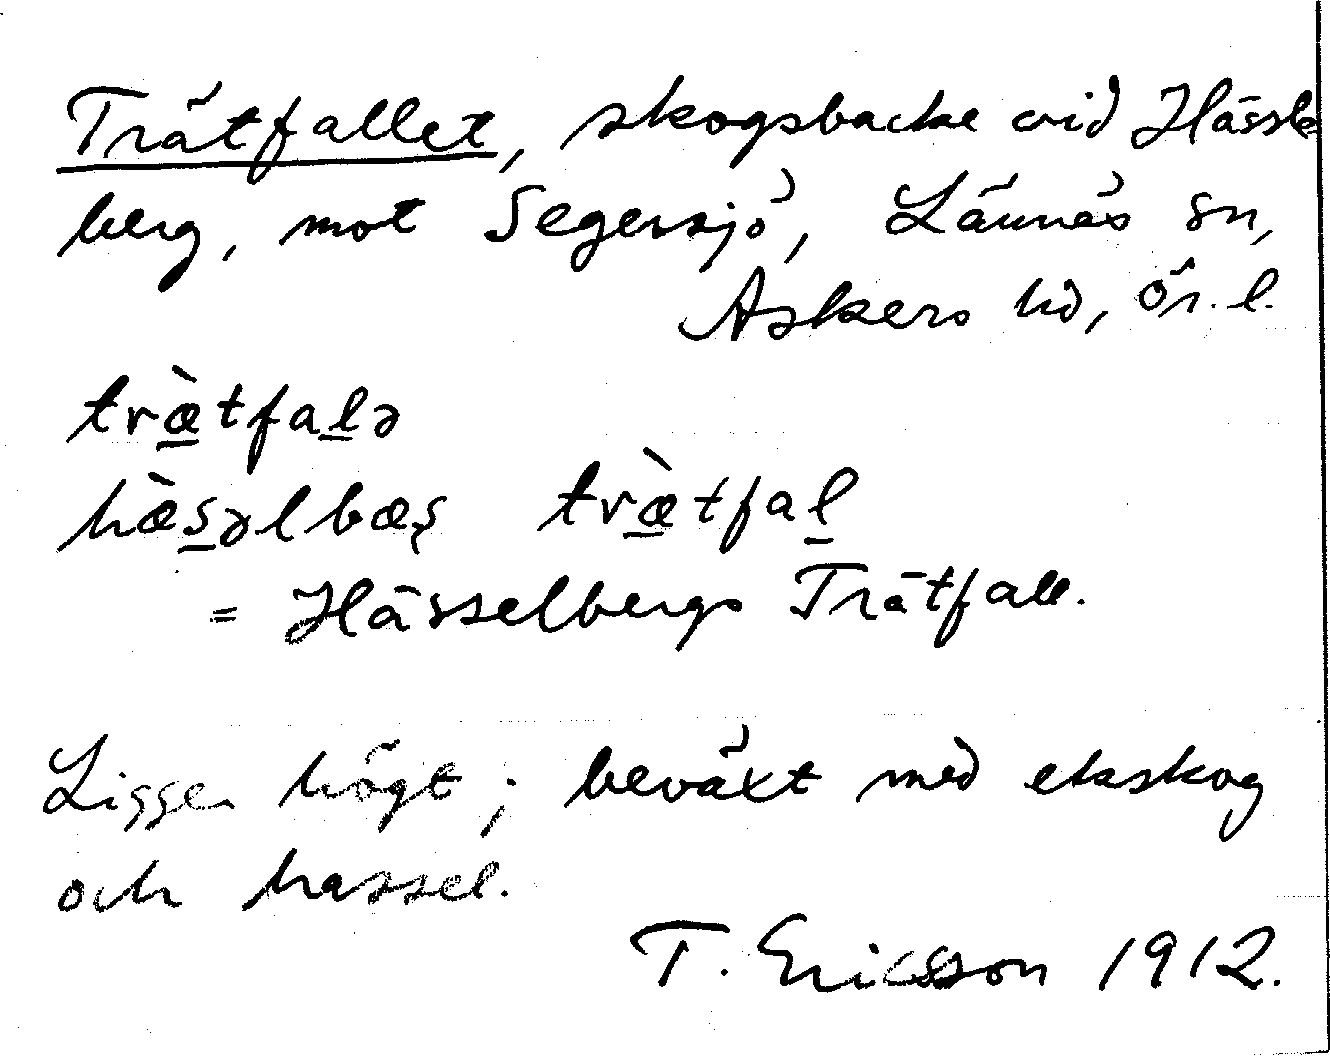 Trätfallet, skogsbacke vid Hässel
berg, mot Segersjö, Lännäs sn,
Askers hd, Ör. l.
træ̀tfalə
hæ̀səlbæş træ̀tfal
= Hässelbergs Trätfall.
Ligger högt; beväxt med ekskog
och hassel.
T. Ericsson 1912.